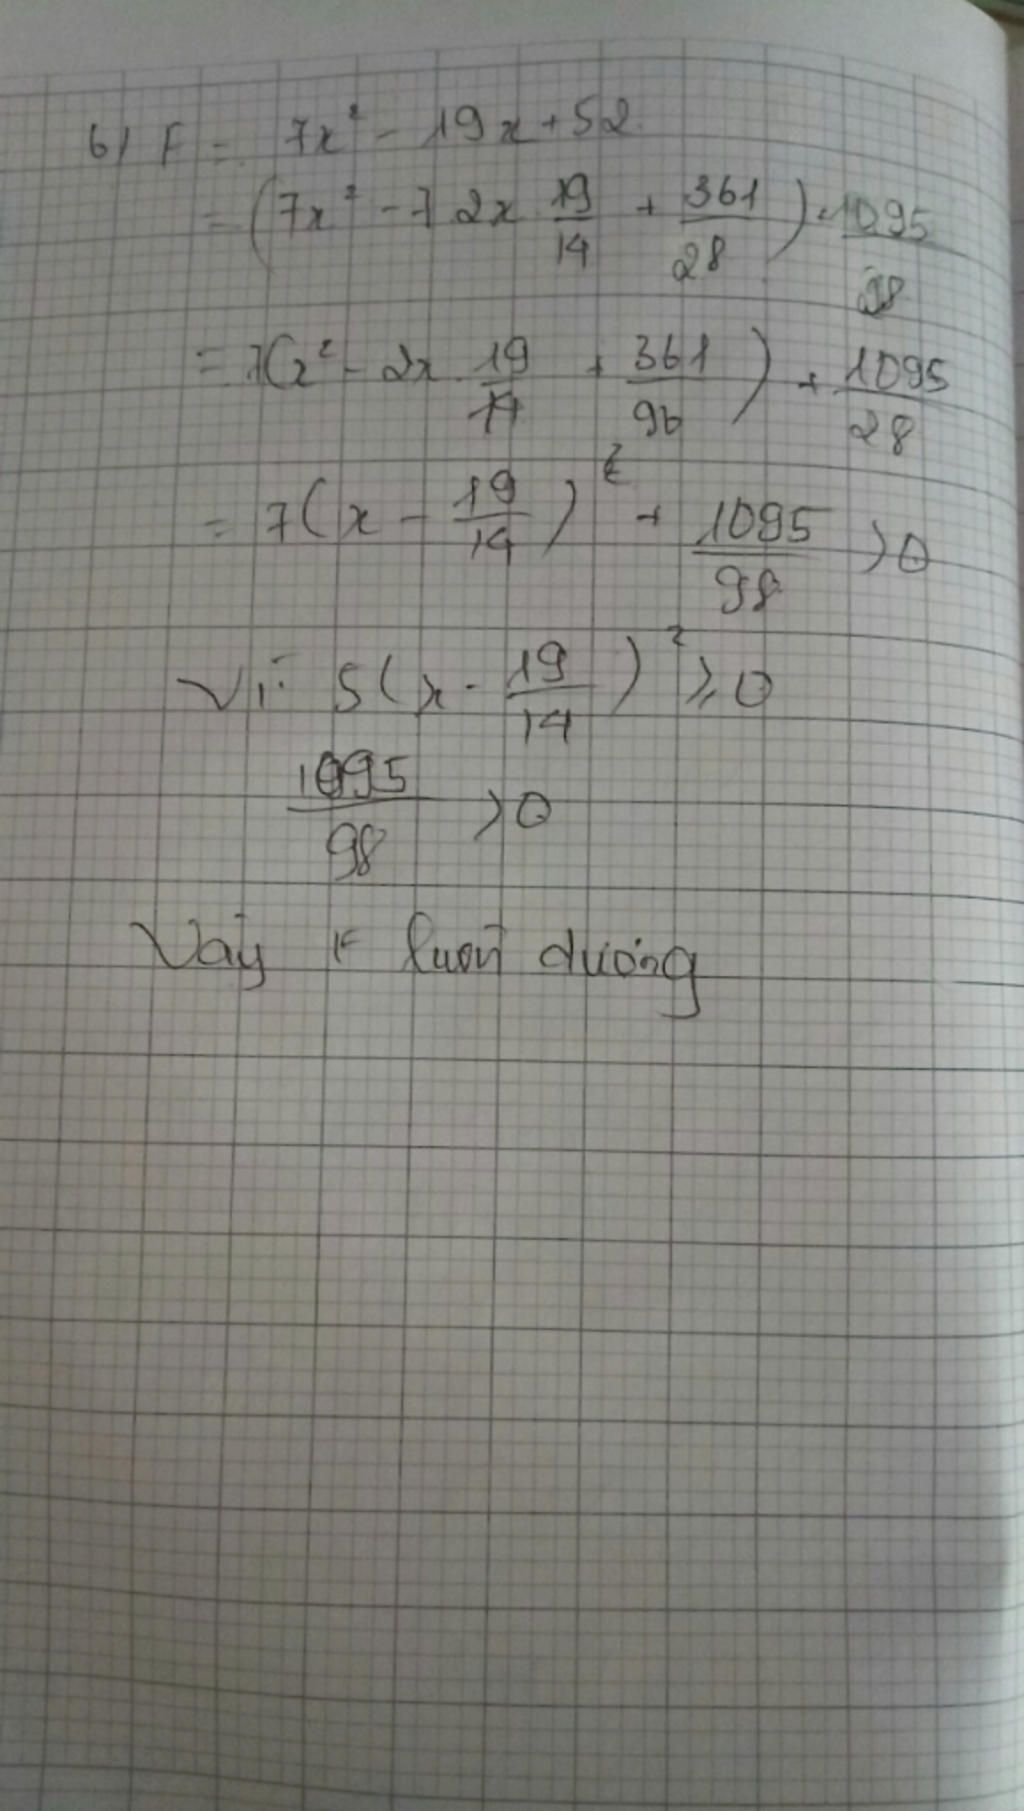 b) F = 7x² - 19x + 52
= (7x² - 7 2x 19/14 + 361/28) + 1095/28
= 7(x² - 2x . 19/14 + 361/96) + 1095/28
= 7(x - 19/14)² + 1095/98 > 0
Vì: 5(x - 19/14)² ≥ 0
1095/98 > 0
Vậy F luôn dương